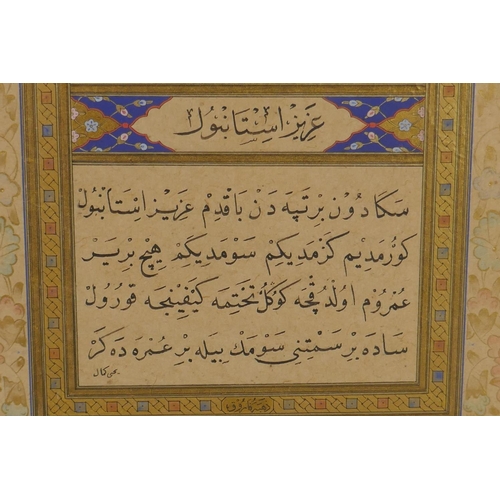 عزيز استانبول
سكا دون بر تپه دن باقدم عزيز استانبول
كورمديم كزمديكم سومديكم هيچ بر ير
عمروم اولدقجه كوكل تختمه كيفينجه قورول
ساده بر سمتنى سومك بيله بر عمره دكر
يحيى كمال